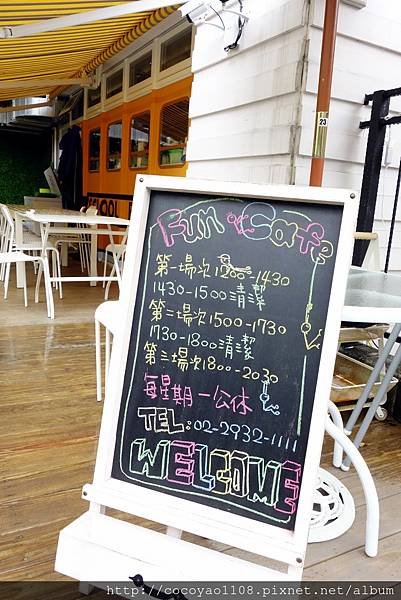 Fun Cafe
第一場次1200-1430
1430-1500清潔
第二場次1500-1730
1730-1800清潔
第三場次1800-2030
每星期一公休
TEL:02-2932-1111
WELCOME
23
http://cocoyao1108.pixnet.net/album